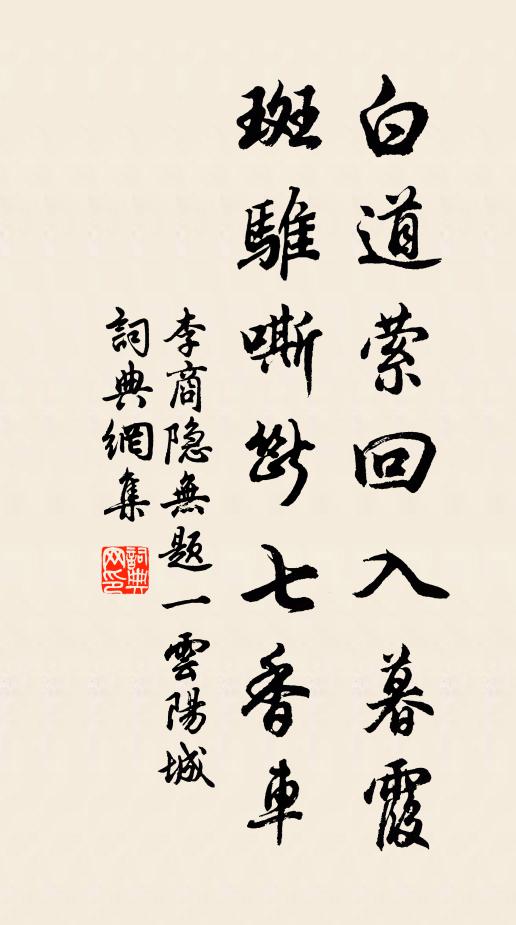 白道萦回入暮霞
斑騅嘶斷七香車
李商隐無题一雲陽城
詞典網集
詞典網印